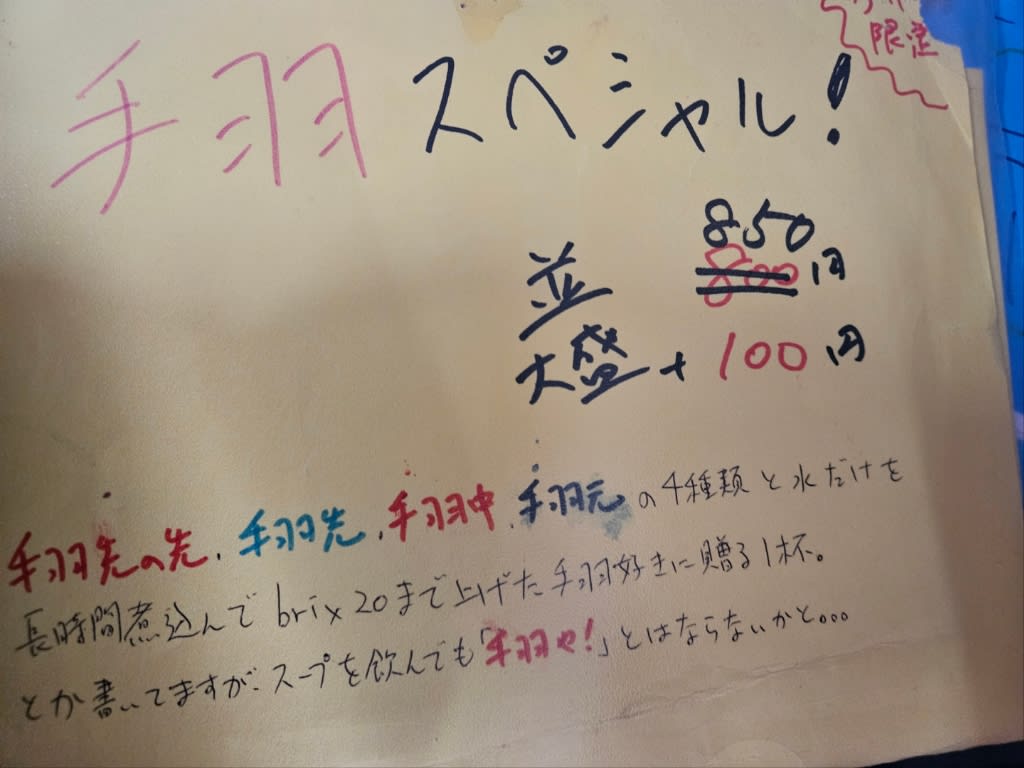 限定
手羽スペシャル!
850
並 800円
大盛 + 100円
手羽先の先、手羽先、手羽中、手羽元の4種類と水だけを
長時間煮込んでbrix20まで上げた手羽好きに贈る1杯。
とか書いてますが、スープを飲んでも「手羽や!」とはならないかと...